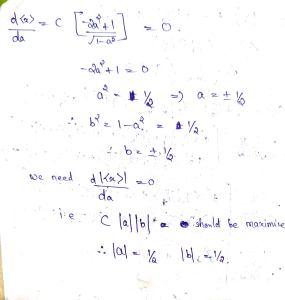 d<x>/da = C [ -2a²+1 / √1-a² ] = 0.
-2a²+1 = 0
a² = 1/2 => a = ± 1/2
∴ b² = 1-a² = 1/2
∴ b = ± 1/2
we need d|<x>|/da = 0
i.e C |a||b| should be maximise
∴ |a| = 1/2 |b| = 1/2.